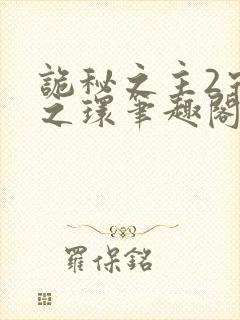 詭秘之主2
之環筆趣閣
羅保銘